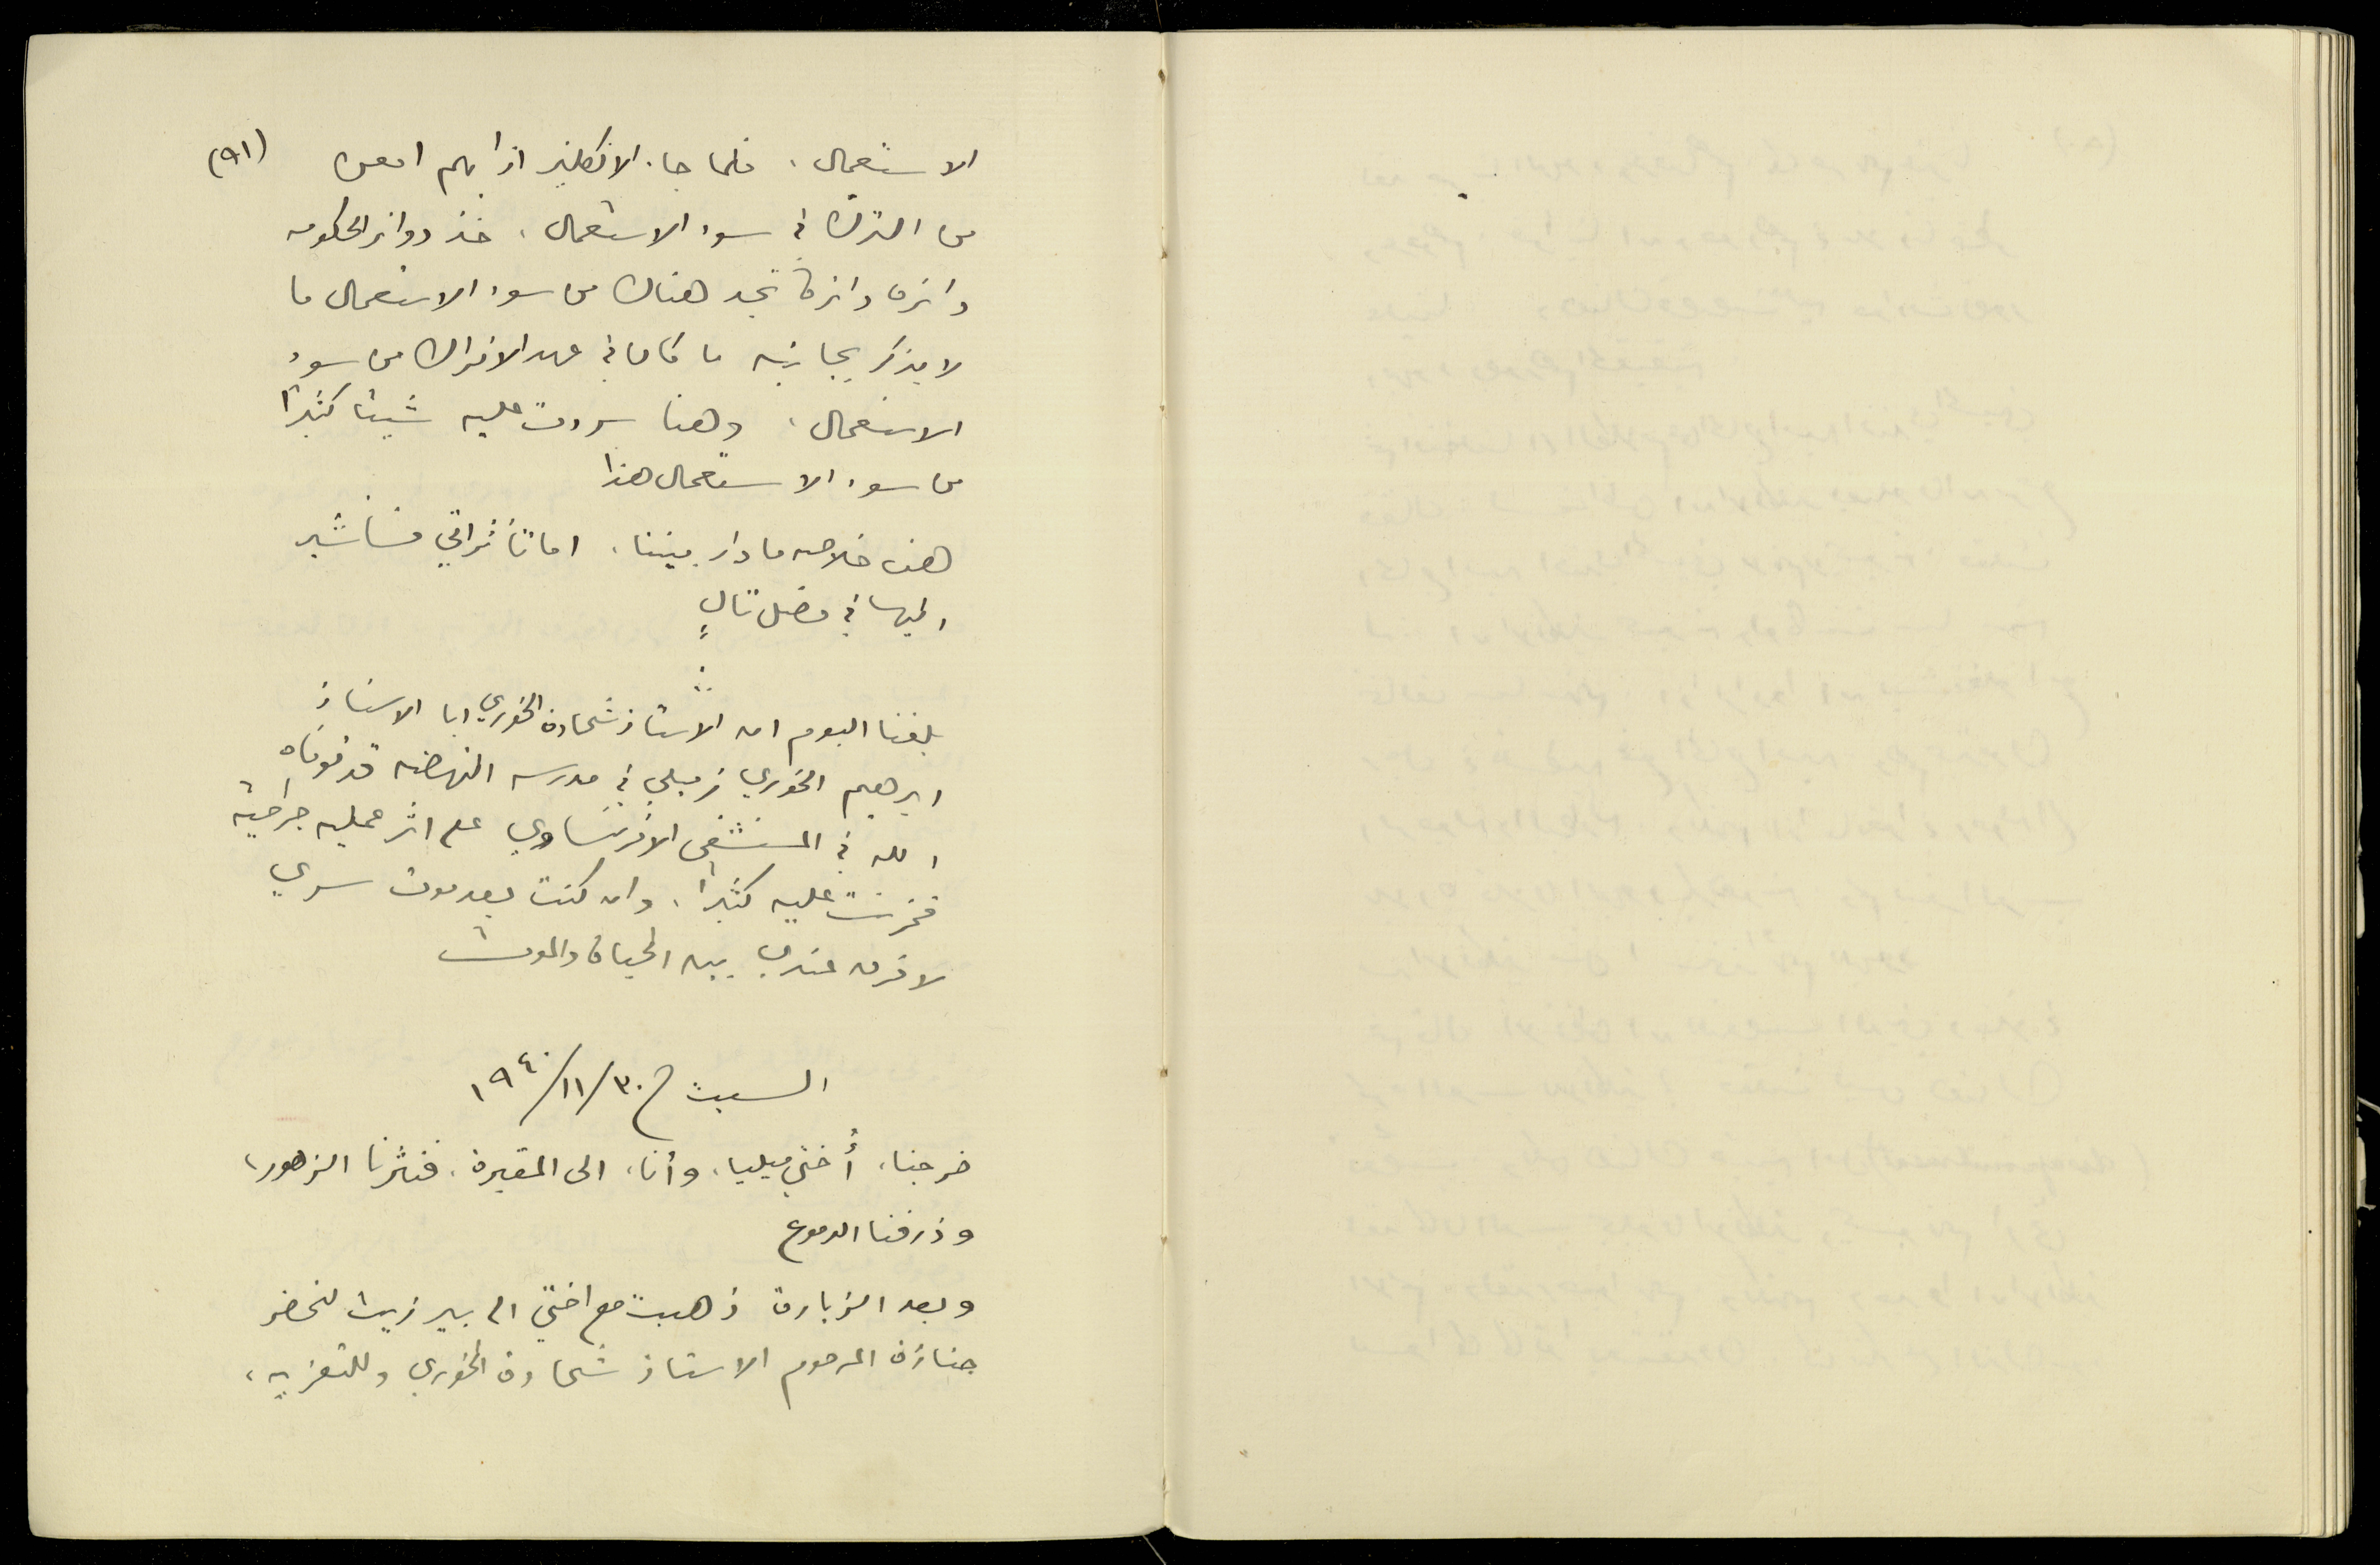 (٩١)
الاستعمال، فلما جاء الانكليز اذا بهم امعن
من الترك في سوء الاستعمال، خذ دوائر الحكومه
دائره دائرة تجد هناك من سوء الاستعمال ما
لا يذكر بجانبه ما كان في عهد الاتراك من سوء
الاستعمال، وهنا سردت عليه شيئا كثيرا
من سوء الاستعمال هذا
هذه خلاصه ما دار بيننا، اما تأثراتي فسأشير
اليها في فصل تالٍ
بلغنا اليوم ان الاستاذ شحادة الخوري ابا الاستاذ
ابرهيم الخوري زميلي في مدرسه النهضه قد توفاه
الله في المستشفى الافرنساوي على اثر عمليه جراحية
فحزنت عليه كثيرا، وان كنت بعد موت سري
لا فرق عندي بين الحياة والموت
السبت ٣٠/١١/١٩٤٠
خرجنا، أُختي ميليا، وأنا، الى المقبرة، فنثرنا الزهور،
وذرفنا الدموع
وبعد الزيارة ذهبت مع اختي الى بير زيت لنحضر
جنازة المرحوم الاستاذ شحادة الخوري وللتعزيه،